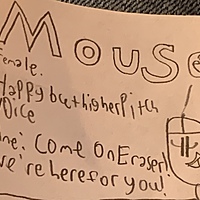 Mouse
Female.
Happy but higher Pitch
Voice
line: Come On Eraser!
we're here for you!